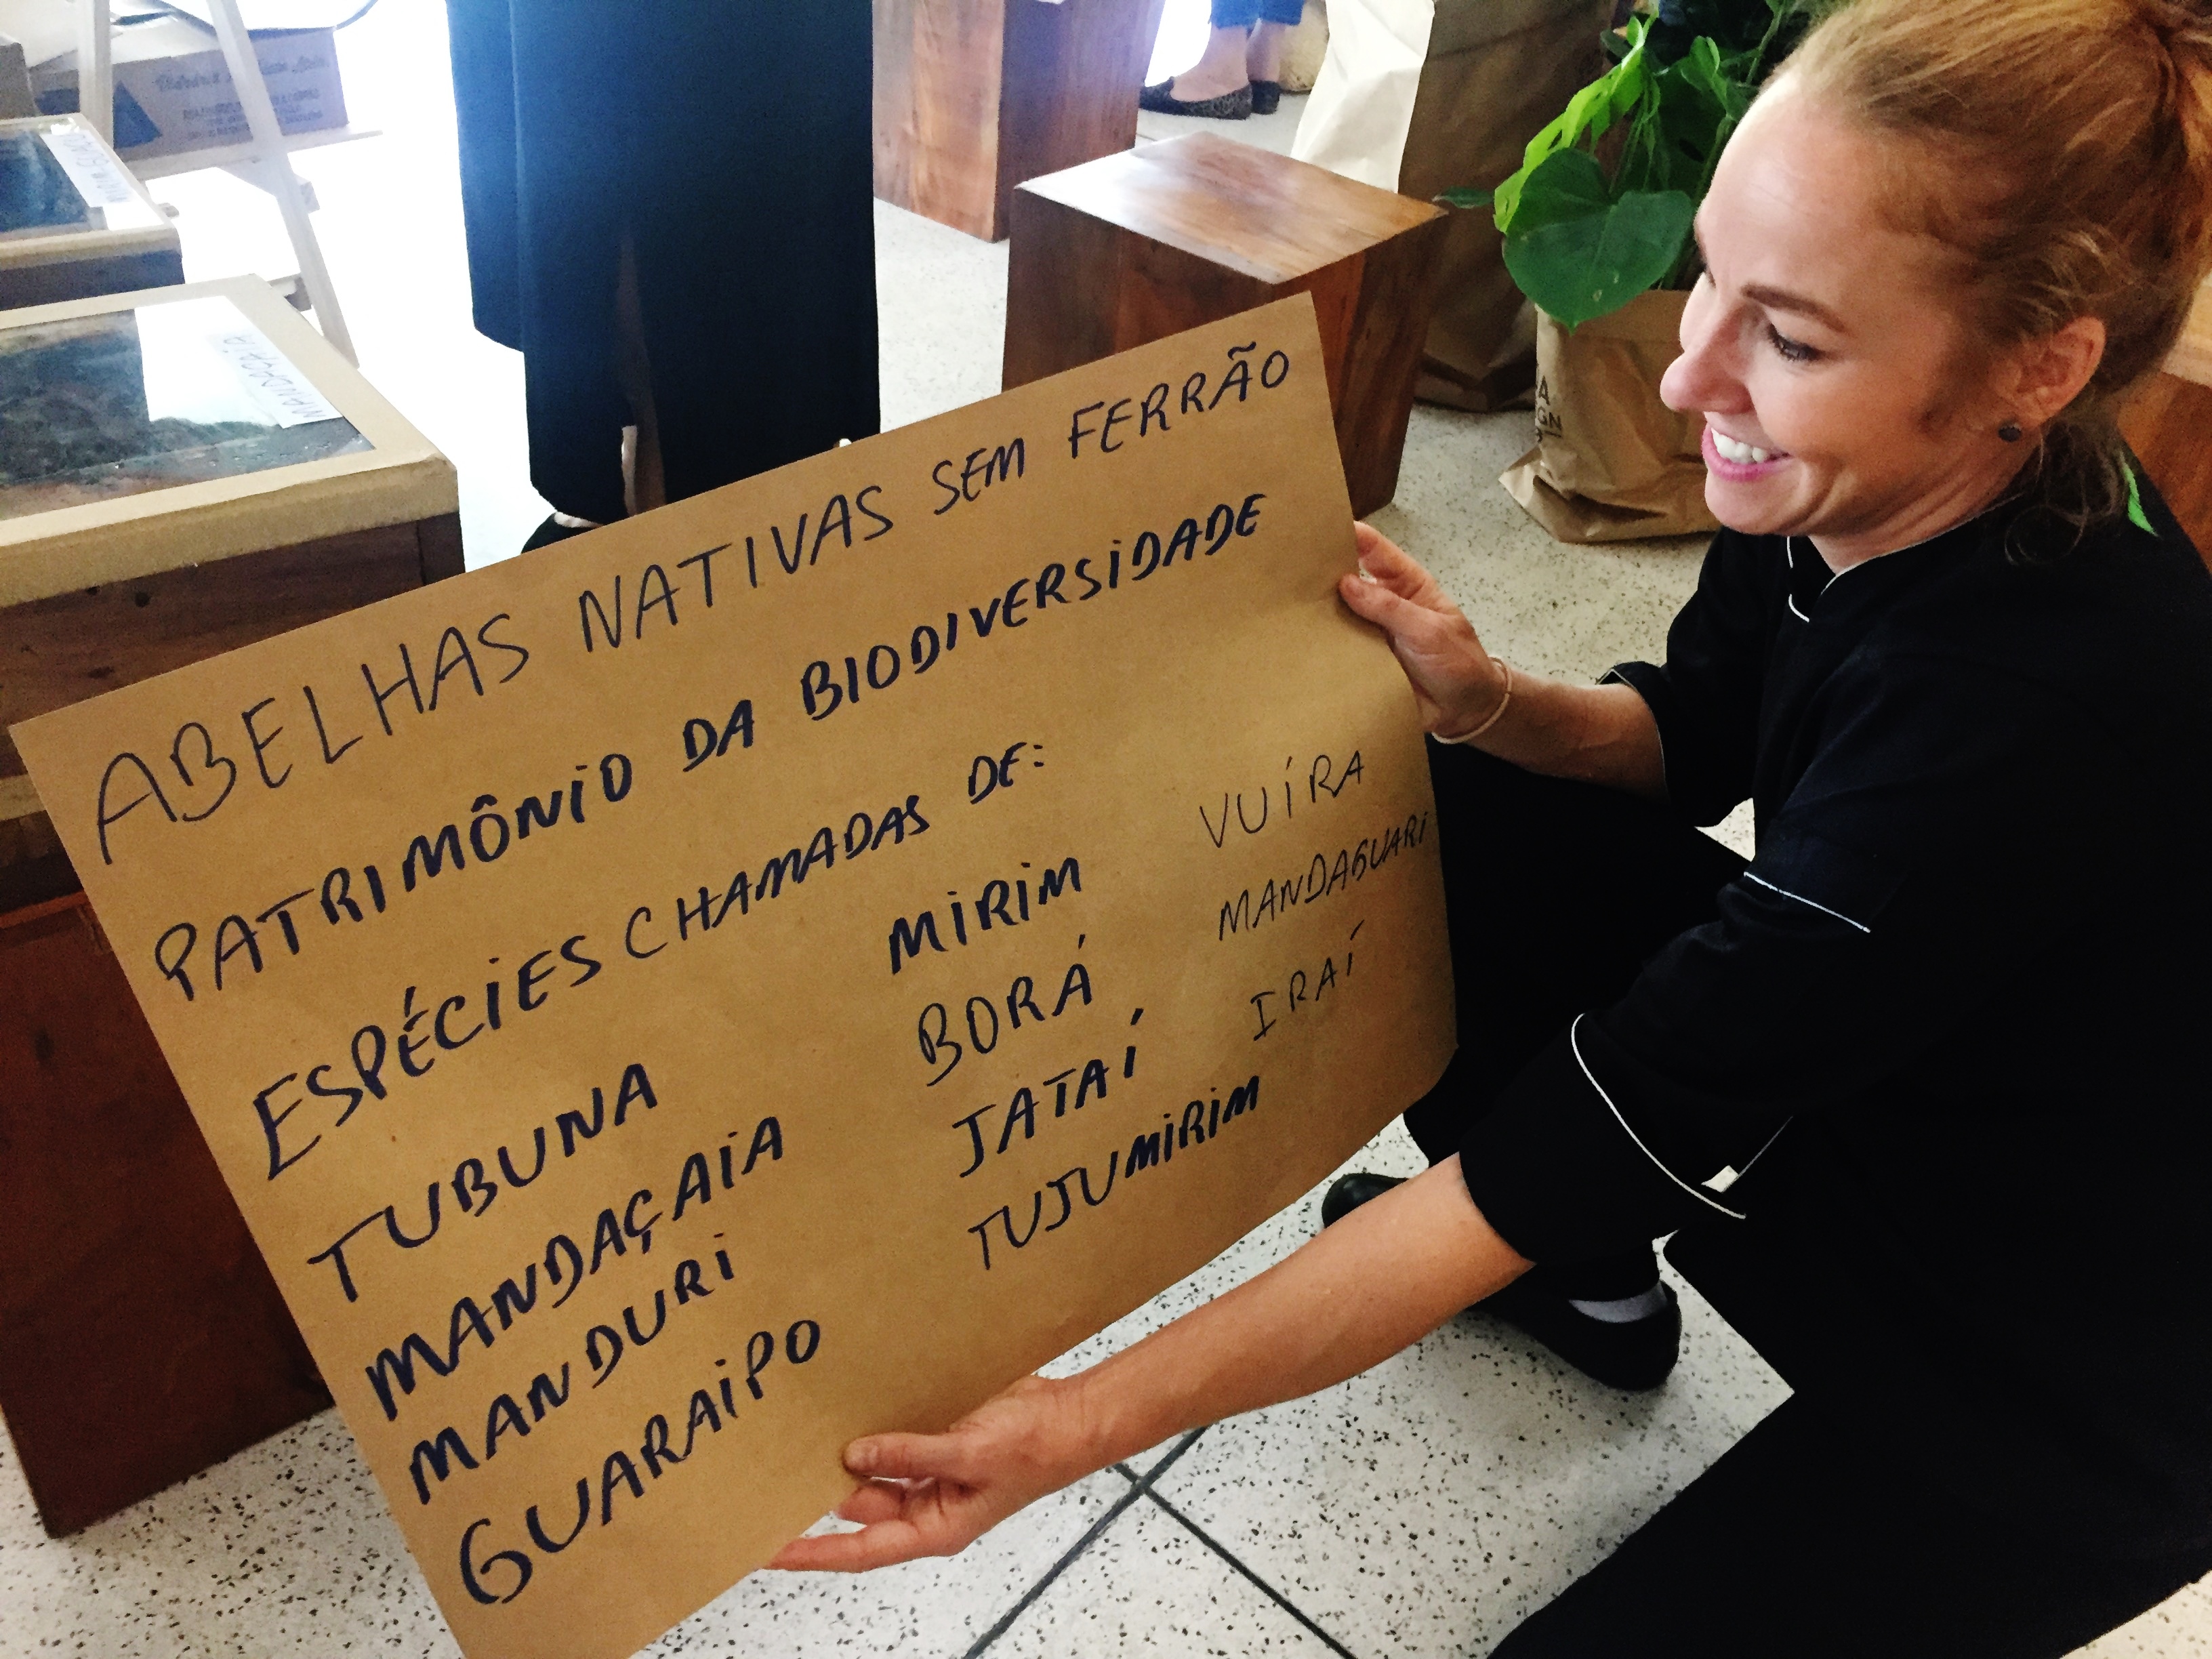 ABELHAS NATIVAS SEM FERRÃO
PATRIMÔNIO DA BIODIVERSIDADE
ESPÉCIES CHAMADAS DE:
TUBUNA
MANDAÇAIA
MANDURI
GUARAIPO
MIRIM
BORÁ
JATAÍ
TUJUMIRIM
VUÍRA
MANDAGUARI
IRAÍ
MANDAÇAIA